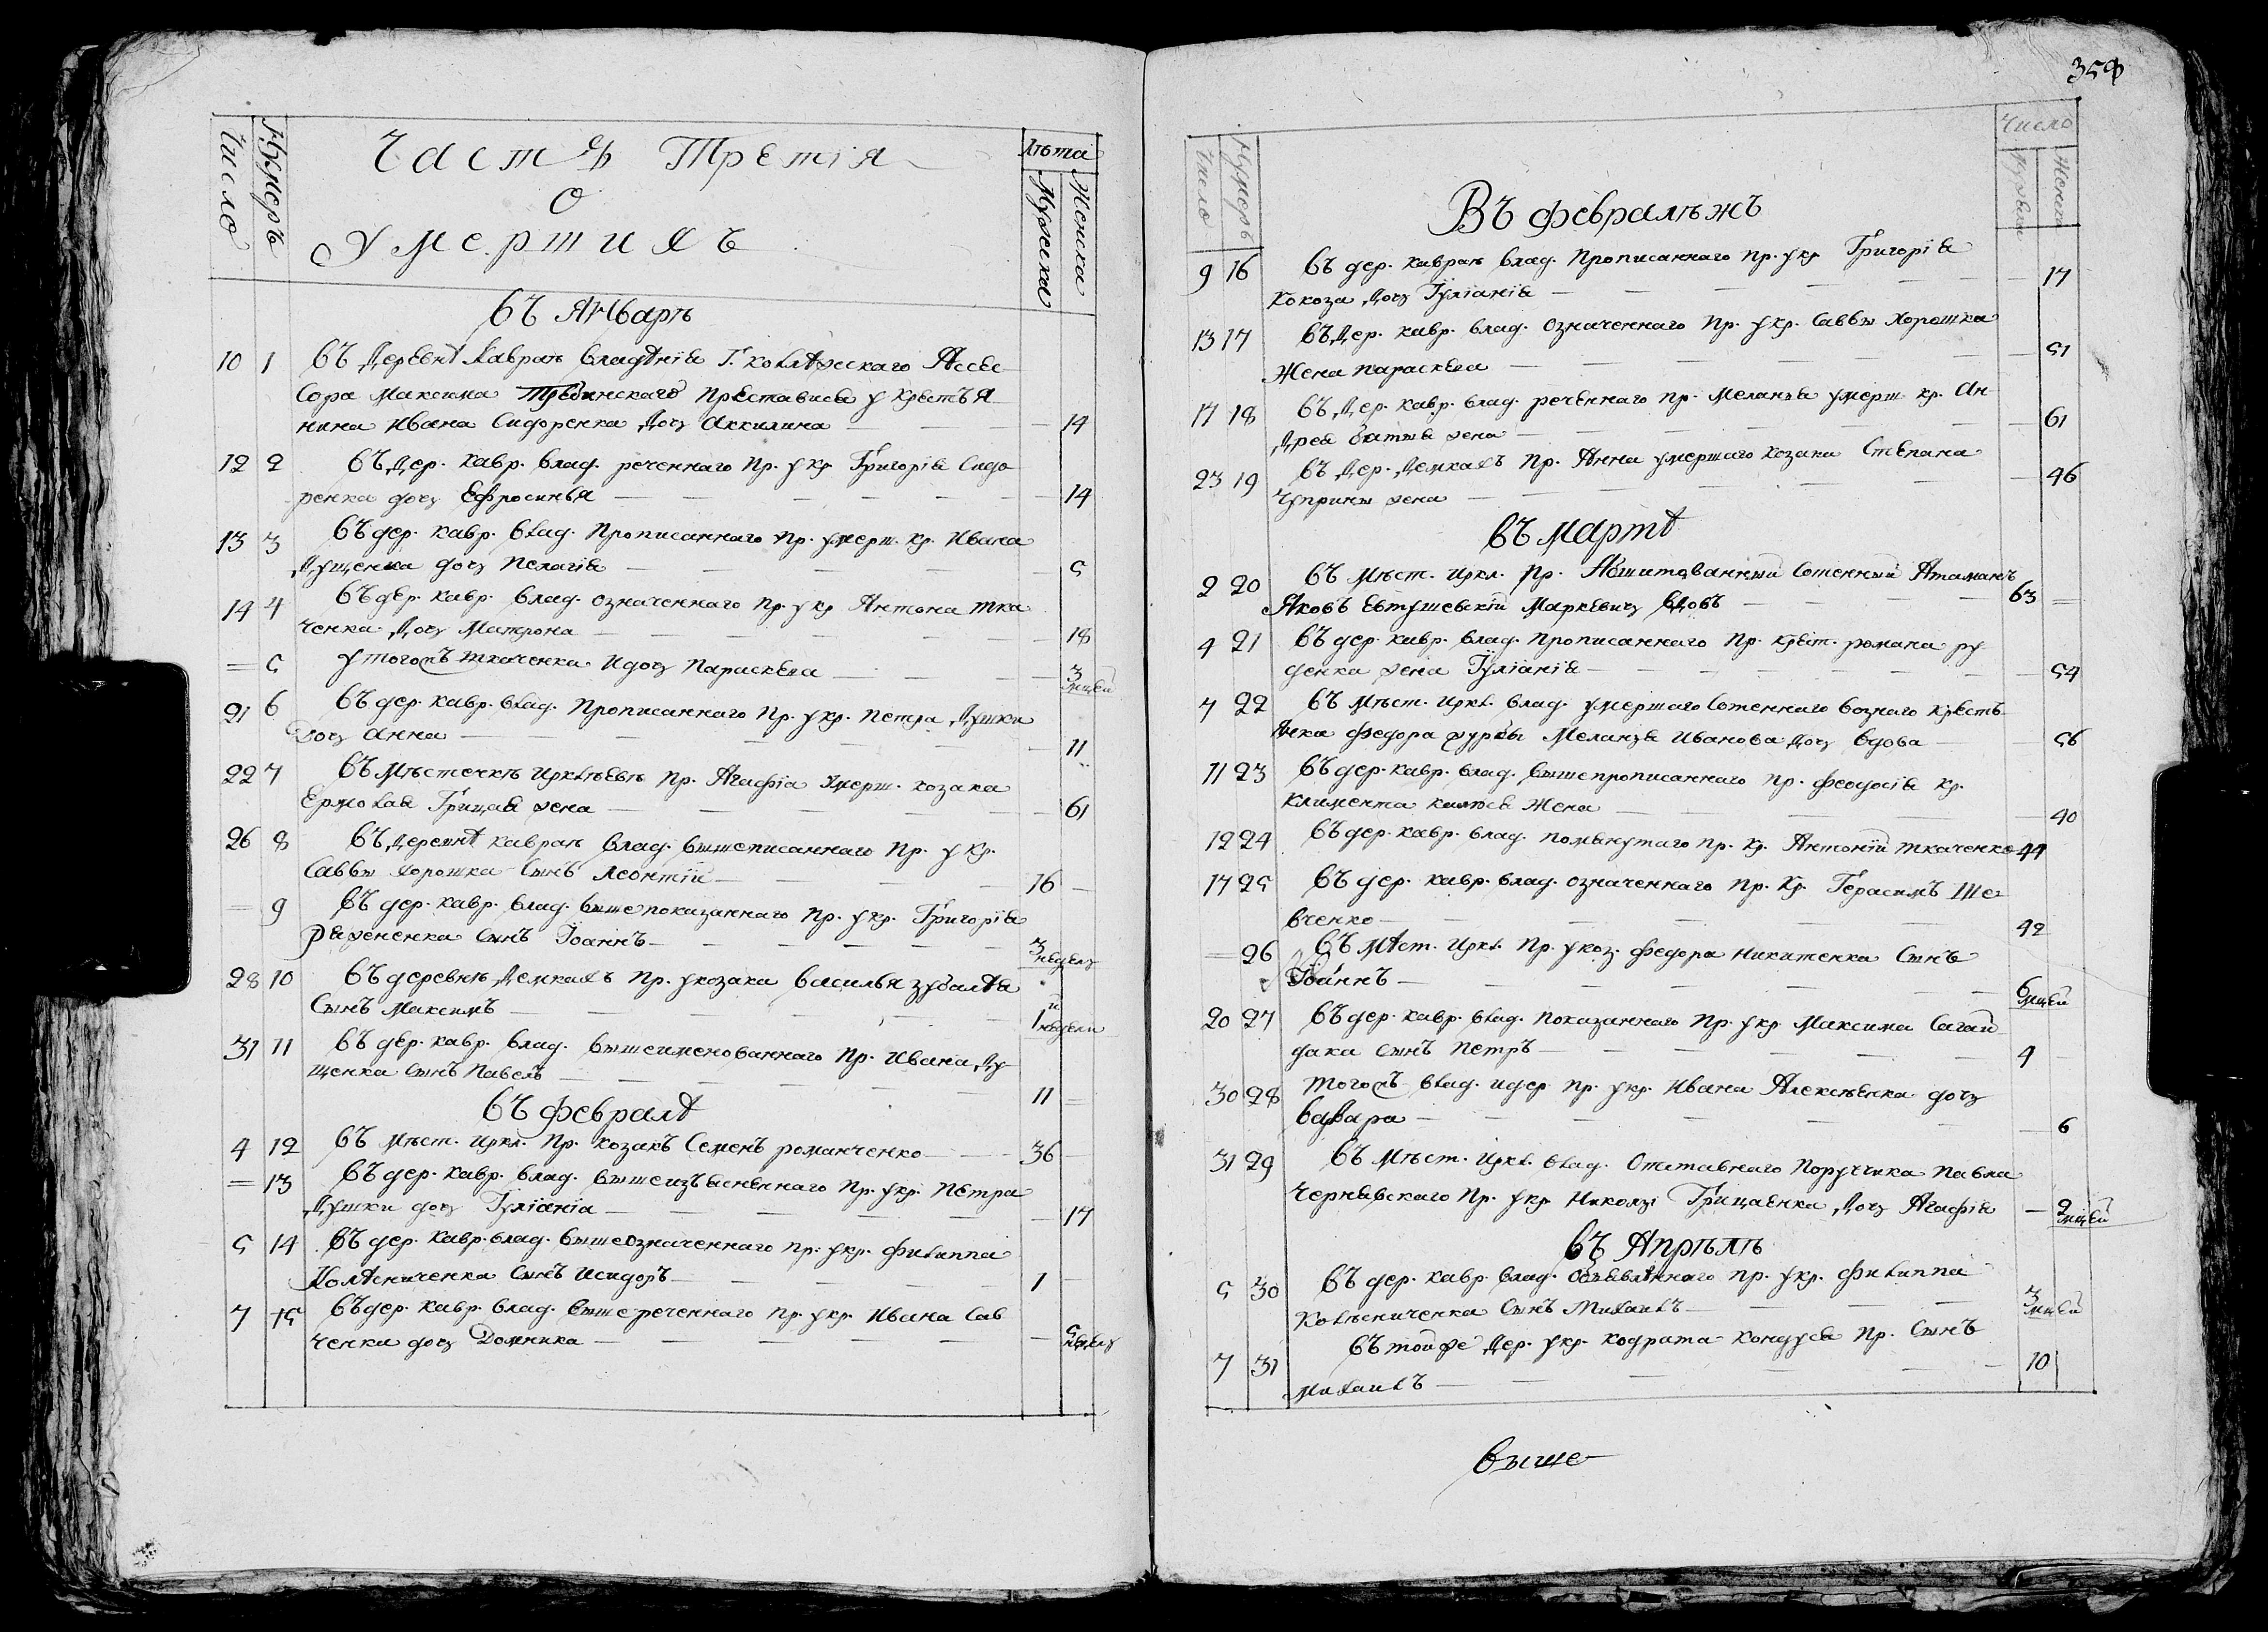 Число Нумеръ
Часть Третія
О
Умершихъ
Лѣта
Мужеска Женска
въ Январѣ
10 1 въ деревнѣ Кавраѣ владѣнія Г. колѣжскаго Ассес
сора Максима Требинскаго преставися у крестья
нина Ивана Сидоренка дочь Акилина 14
12 2 въ дер. кавр. влад. реченнаго пр. у кр. Григорія Сидо
ренка дочь Ефросинья 14
13 3 въ дер. кавр. влад. прописаннаго пр. умерш. кр. Ивана
Дущенка дочь Пелагія 5
14 4 въ дер. кавр. влад. означеннаго пр. у кр. Антона тка
ченка дочь Матрона 18
= 5 у тогожъ ткаченка и дочь Параскева 3 мцей
21 6 въ дер. кавр. влад. прописаннаго пр. у кр. Петра Душки
дочь Анна 11
22 7 въ Мѣстечкѣ Ирклѣевѣ пр. Агафіа умерш. козака
Ермолая Грицая жена 61
26 8 въ деревнѣ кавраѣ влад. вышеписаннаго пр. у кр.
Саввы хорошка сынъ Леонтій 16
= 9 въ дер. кавр. влад. вышепоказаннаго пр. у кр. Григорія
сынъ Іоаннъ 3 недель
28 10 въ деревнѣ Демкахъ пр. у козака василья
сынъ Максимъ 1 недели
31 11 въ дер. кавр. влад. вышеименованнаго пр. Ивана Ду
щенка сынъ Павелъ 11 =
въ февралѣ
4 12 въ мѣст. иркл. пр. козакъ Семенъ романченко 36
= 13 въ дер. кавр. влад. вышеизъясненнаго пр. у кр. Петра
Душки дочь Іуліаніа 17
5 14 въ дер. кавр. влад. вышеозначеннаго пр. у кр. филиппа
Колѣсниченка сынъ Исидоръ 1
7 15 въ дер. кавр. влад. вышереченнаго пр. у кр. Ивана Сав
ченка дочь Домника 5 недель
359
Число Нумеръ
Число
Мужеска Женска
Въ февралѣжъ
9 16 въ дер. кавраѣ влад. прописаннаго пр. у кр. Григорія
Кокоза дочь Іуліанія 17
13 17 въ дер. кавр. влад. означеннаго пр. у кр. Саввы Хорошка
жена параскева 51
17 18 въ дер. кавр. влад. реченнаго пр. меланья умерш. кр. Ан
дрея жена 61
23 19 въ дер. Демкахъ пр. Анна умершаго козака Степана
Чуприны жена 46
въ мартѣ
2 20 въ мѣст. иркл. пр. Абшитованный сотенный Атаманъ
Яковъ Евтушевскій Маркевичь вдовъ 63 =
4 21 въ дер. кавр. влад. прописаннаго пр. крест. романа ру
денка жена Іуліанія 54
7 22 въ мѣст. иркл. влад. умершаго сотеннаго вознаго крестья
нка федора журбы Меланья Иванова дочь вдова 56
11 23 въ дер. кавр. влад. вышепрописаннаго пр. феодосія кр.
климента жена 40
12 24 въ дер. кавр. влад. помянутаго пр. кр. Антоній ткаченко 44
17 25 въ дер. кавр. влад. означеннаго пр. кр. Герасимъ Ше
вченко 42
= 26 въ мѣст. иркл. пр. у коз. федора никитенка сынъ
Іоаннъ 6 мцей
20 27 въ дер. кавр. влад. показаннаго пр. у кр. Максима Сагай
дака сынъ Петръ 4
30 28 тогожъ влад. и дер. пр. у кр. Ивана Алексѣенка дочь
варвара 6
31 29 въ мѣст. иркл. влад. отставнаго поручика павла
чернявскаго пр. у кр. Николы Грицаенка дочь Агафія 2 мцей
въ Апрѣлѣ
5 30 въ дер. кавр. влад. объявленнаго пр. у кр. филиппа
колѣсниченка сынъ Михаилъ 3 мцей
7 31 въ тойже дер. у кр. кодрата кондуся пр. сынъ
Михаилъ 10
выше